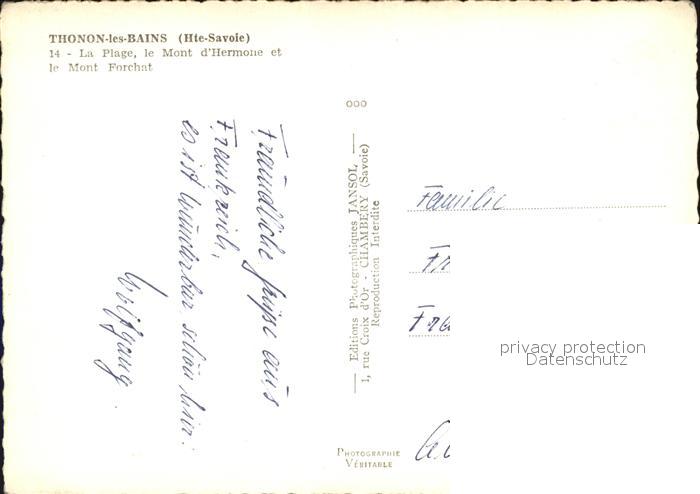 THONON-les-BAINS (Hte-Savoie)
14 - La Plage, le Mont d'Hermone et
le Mont Forchat
Freundliche Grüße aus
Frankreich,
es ist wunderbar schön hier.
Wolfgang
ooo
Editions Photographiques JANSOL
1, rue Croix d'Or - CHAMBERY (Savoie)
Reproduction Interdite
Familie
Fr
Fra
privacy protection
Datenschutz
PHOTOGRAPHIE
VÉRITABLE